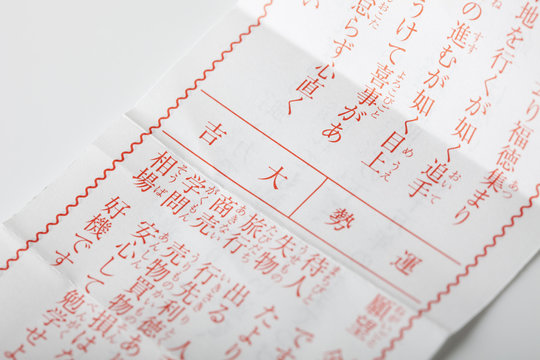 より福徳集まり
地を行くが如く追手
の進むが如く目上
うけて喜事があ
怠らず心直く
運勢
大吉
願望
待人 たより
失物 出る
旅行 行先利
商売 売物買物損はな
学問 安心して勉学せよ
相場 好機です